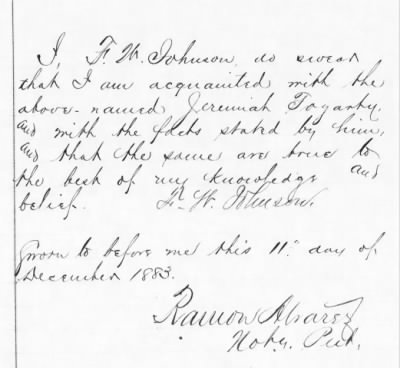 I, F. W. Johnson, do swear
that I am acquainted with the
above-named Jeremiah Fogarty,
and with the facts stated by him,
and that the same are true to
the best of my knowledge and
belief. F. W. Johnson.
Sworn to before me this 11" day of
December 1883.
Ramon Alvarez
Noty. Pub.